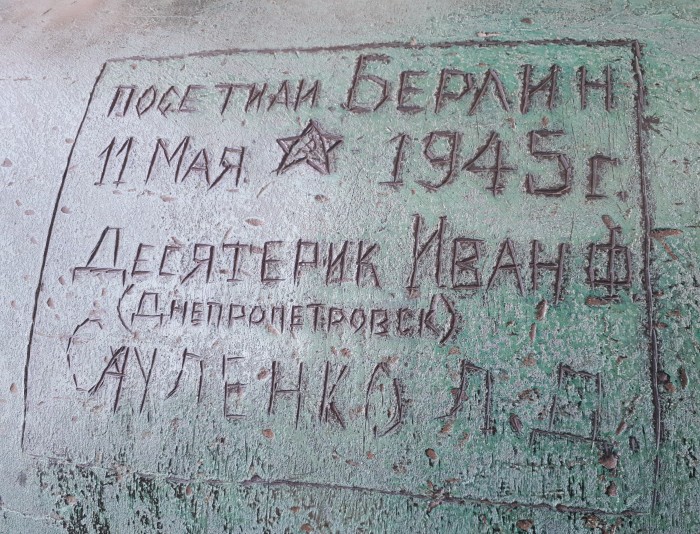 ПОСЕТИЛИ БЕРЛИН
11 МАЯ. 1945 г.
ДЕСЯТЕРИК ИВАН Ф
(ДНЕПРОПЕТРОВСК)
САУЛЕНКО Л.Д